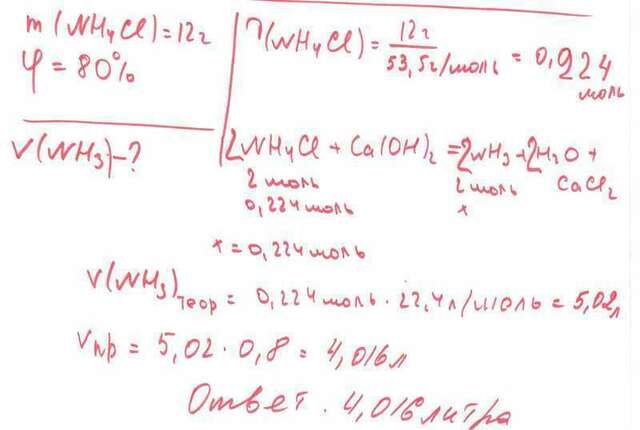 m(NH4Cl)=12г
φ=80%
V(NH3)-?
η(NH4Cl)=12г/53,5г/моль=0,224 моль
2NH4Cl+Ca(OH)2=2NH3+2H2O+CaCl2
2 моль 2 моль
0,224 моль x
x=0,224 моль
V(NH3)теор=0,224 моль·22,4л/моль=5,02л
Vпр=5,02·0,8=4,016л
Ответ. 4,016 литра